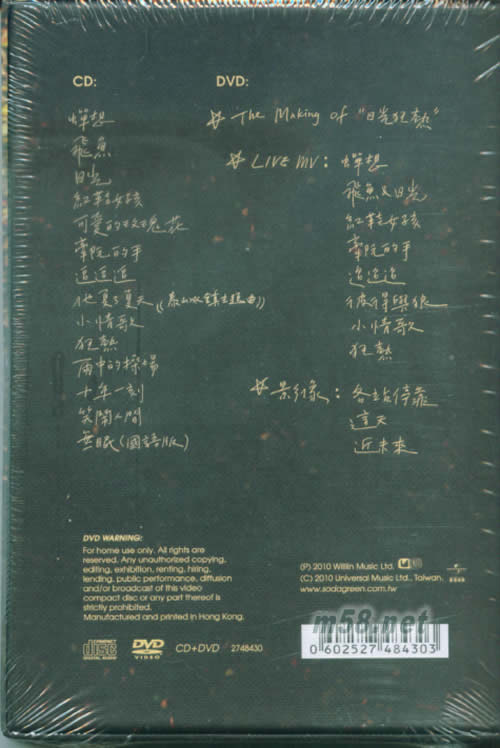 CD:
蟬想
飛魚
日光
紅鞋女孩
可愛的玫瑰花
牽阮的手
追追追
他夏了夏天
小情歌
狂熱
雨中的操場
十年一刻
笑鬧人間
無眠(國語版)
DVD:
# The Making of "日光狂熱"
# LIVE MV: 蟬想
飛魚&日光
紅鞋女孩
牽阮的手
追追追
彼得與狼
小情歌
狂熱
# 影像: 各站停靠
這天
近未來
DVD WARNING:
For home use only. All rights are
reserved. Any unauthorized copying,
editing, exhibition, renting, hiring,
lending, public performance, diffusion
and/or broadcast of this video
compact disc or any part thereof is
strictly prohibited.
Manufactured and printed in Hong Kong.
(P) 2010 Willin Music Ltd.
(C) 2010 Universal Music Ltd., Taiwan.
www.sodagreen.com.tw
COMPACT
disc
DIGITAL AUDIO
DVD
VIDEO
CD+DVD 2748430
m58.net
0 602527 484303